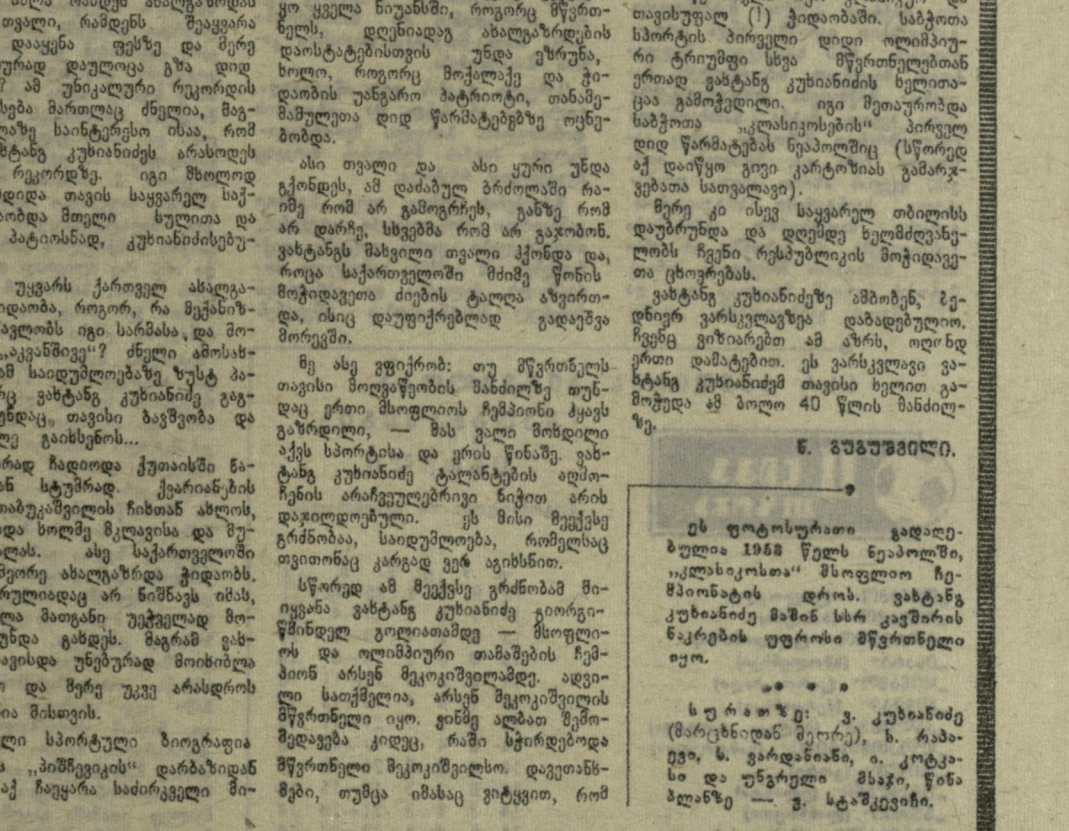 თვალი, რამდენს შეაყვარა
დააყენა ფეხზე და მერე
ურად დაულოცა გზა დიდ
? ამ უნიკალური რეკორდის
სება მართლაც ძნელია, მაგ-
ლაზე საინტერესო ისაა, რომ
ხტანგ კუხიანიძეს არასოდეს
რეკორდზე. იგი მხოლოდ
დიდა თავის საყვარელ საქ-
აობდა მთელი სულითა და
პატიოსნად, კუხიანიძისებუ-
უყვარს ქართველ ახალგა-
იდაობა, როგორ, რა მექანიზ-
ავლობს იგი სარმასა და მო-
„აკვანშივე“? ძნელი ამოსახ-
ამ საიდუმლოებაზე ზუსტ პა-
რც ვახტანგ კუხიანიძე გაგ-
უნდაც თავისი ბავშვობა და
ლე გაიხსენოს...
რად ჩადიოდა ქუთაისში ნა-
ან სტუმრად. ქვარიანების
თაბუკაშვილის ჩიხთან ახლოს,
და ხოლმე მკლავისა და მუ-
ლას. ასე საქართველოში
მეორე ახალგაზრდა ჭიდაობს.
რულიადაც არ ნიშნავს იმას,
ლა მათგანი უეჭველად მო-
უნდა გახდეს. მაგრამ ვახ-
ავისდა უნებურად მოიხიბლა
და მერე უკვე არასდროს
ია მისთვის.
ლი სპორტული ბიოგრაფია
„პიშჩევიკის“ დარბაზიდან
აქ ჩაეყარა საძირკველი მი-
ყო ყველა ნიუანსში, როგორც მწვრთ-
ნელს, დღენიადაგ ახალგაზრდების
დაოსტატებისთვის უნდა ეზრუნა,
ხოლო, როგორც მოქალაქე და ჭი-
დაობის უანგარო პატრიოტი, თანამე-
მამულეთა დიდ წარმატებებზე ოცნე-
ბობდა.
ასი თვალი და ასი ყური უნდა
გქონდეს, ამ დაძაბულ ბრძოლაში რა-
იმე რომ არ გამოგრჩეს, განზე რომ
არ დარჩე, სხვებმა რომ არ გაჯობონ.
ვახტანგს მახვილი თვალი ჰქონდა და,
როცა საქართველოში მძიმე წონის
მოჭიდავეთა ძიების ტალღა აზვირთ-
და, ისიც დაუფიქრებლად გადაეშვა
მორევში.
მე ასე ვფიქრობ: თუ მწვრთნელს
თავისი მოღვაწეობის მანძილზე თუნ-
დაც ერთი მსოფლიოს ჩემპიონი ჰყავს
გაზრდილი, — მას ვალი მოხდილი
აქვს სპორტისა და ერის წინაშე. ვახ-
ტანგ კუხიანიძე ტალანტების აღმო-
ჩენის არაჩვეულებრივი ნიჭით არის
დაჯილდოებული. ეს მისი მეექვსე
გრძნობაა, საიდუმლოება, რომელსაც
თვითონაც კარგად ვერ აგიხსნით.
სწორედ ამ მეექვსე გრძნობამ მი-
იყვანა ვახტანგ კუხიანიძე გიორგი-
წმინდელ გოლიათამდე — მსოფლი-
ოს და ოლიმპიური თამაშების ჩემ-
პიონ არსენ მეკოკიშვილამდე. ადვი-
ლი სათქმელია, არსენ მეკოკიშვილის
მწვრთნელი იყო. ვინმე ალბათ შემო-
მედავება კიდეც, რაში სჭირდებოდა
მწვრთნელი მეკოკიშვილსო. დავეთანხ-
მები, თუმცა იმასაც ვიტყვით, რომ
თავისუფალ (!) ჭიდაობაში. საბჭოთა
სპორტის პირველი დიდი ოლიმპიუ-
რი ტრიუმფი სხვა მწვრთნელებთან
ერთად ვახტანგ კუხიანიძის ხელითა-
ცაა გამოჭედილი. იგი მეთაურობდა
საბჭოთა „კლასიკოსების“ პირველ
დიდ წარმატებას ნეაპოლშიც (სწორედ
აქ დაიწყო გივი კარტოზიას გამარჯ-
ვებათა სათვალავი).
მერე კი ისევ საყვარელ თბილისს
დაუბრუნდა და დღემდე ხელმძღვანე-
ლობს ჩვენი რესპუბლიკის მოჭიდავე-
თა ცხოვრებას.
ვახტანგ კუხიანიძეზე ამბობენ, ბე-
დნიერ ვარსკვლავზეა დაბადებულიო.
ჩვენც ვიზიარებთ ამ აზრს, ოღონდ
ერთი დამატებით. ეს ვარსკვლავი ვა-
ხტანგ კუხიანიძემ თავისი ხელით გა-
მოჭედა ამ ბოლო 40 წლის მანძილ-
ზე.
ნ. გუგუშვილი.
ეს ფოტოსურათი გადაღე-
ბულია 1953 წელს ნეაპოლში,
„კლასიკოსთა“ მსოფლიო ჩე-
მპიონატის დროს. ვახტანგ
კუხიანიძე მაშინ სსრ კავშირის
ნაკრების უფროსი მწვრთნელი
იყო.
სურათზე: ვ. კუხიანიძე
(მარცხნიდან მეორე), ს. რაპა-
ევი, ს. ვარდანიანი, ი. კოტკა-
სი და უნგრელი მსაჯი, წინა
პლანზე — ვ. სტაშკევიჩი.